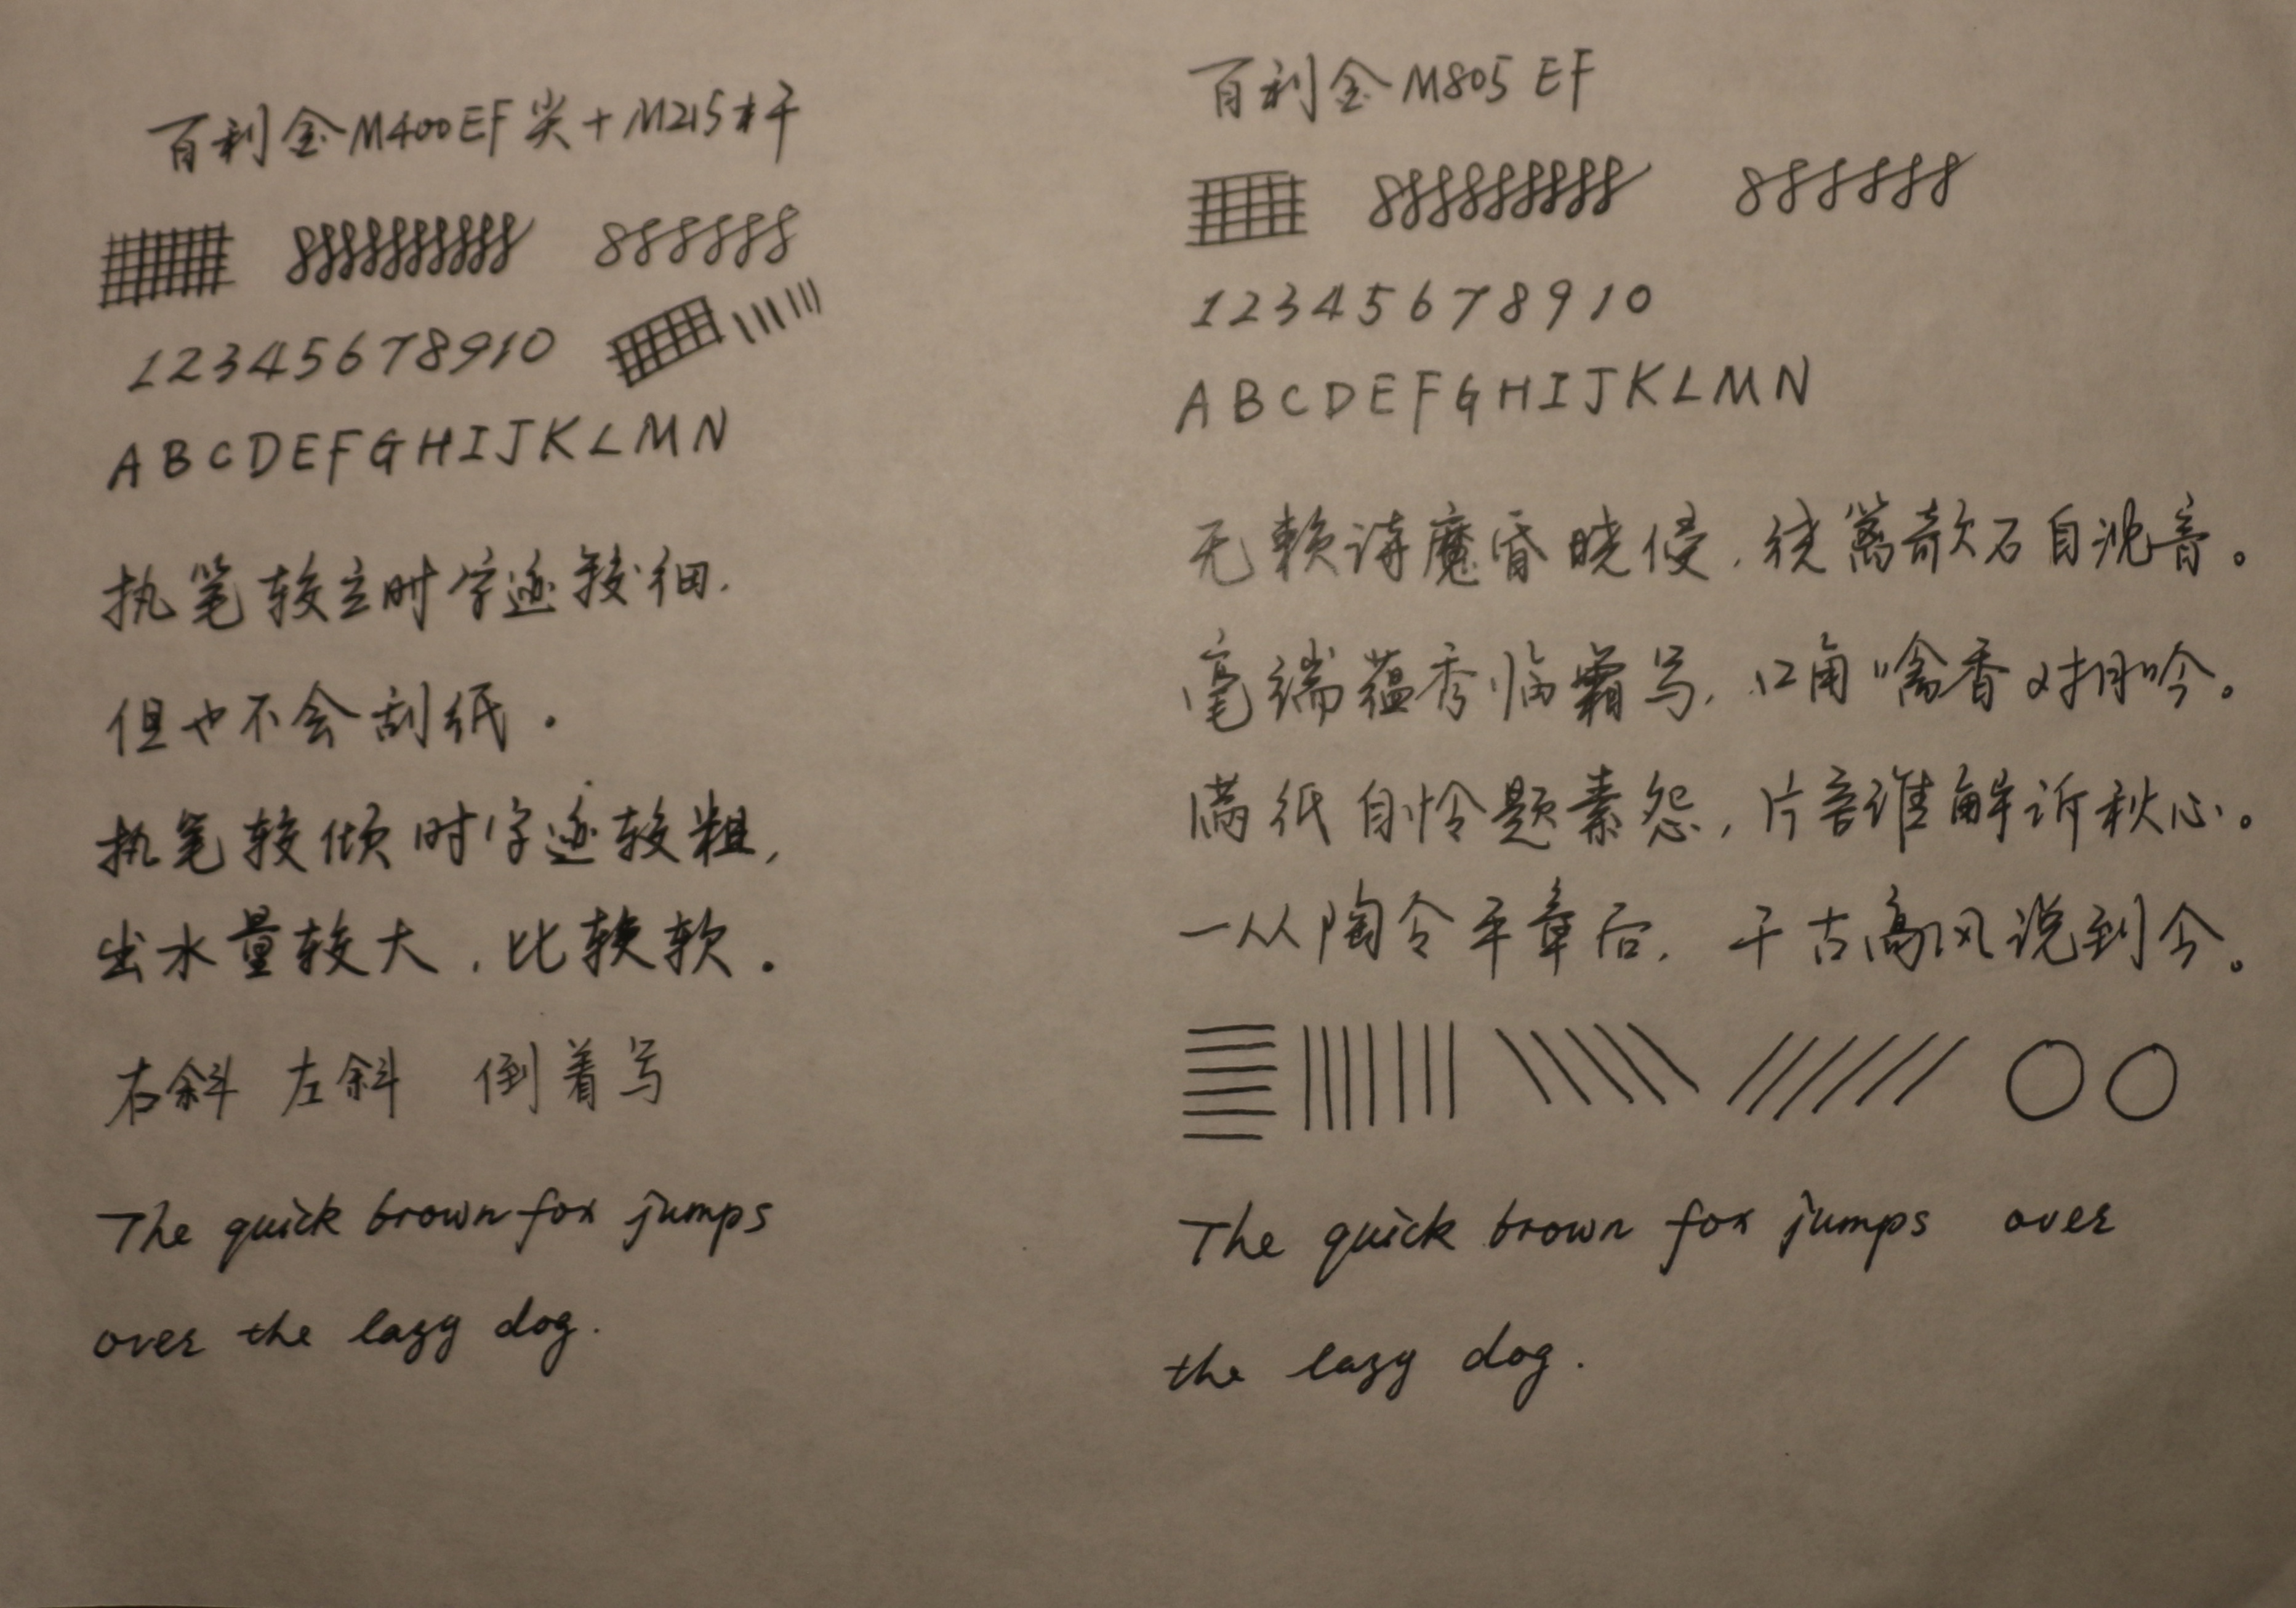 百利金M400EF尖+M215杆
8888888888 888888
12345678910
ABCDEFGHIJKLMN
执笔较立时字迹较细.
但也不会刮纸.
执笔较倾时字迹较粗,
出水量较大,比较软.
右斜 左斜 倒着写
The quick brown fox jumps
over the lazy dog.
百利金M805 EF
8888888888 888888
1 2 3 4 5 6 7 8 9 10
A B C D E F G H I J K L M N
无赖诗魔昏晓侵,绕篱欹石自沈音。
毫端蕴秀临霜写,口角噙香对月吟。
满纸自怜题素怨,片言谁解诉秋心。
一从陶令平章后,千古高风说到今。
The quick brown fox jumps over
the lazy dog.